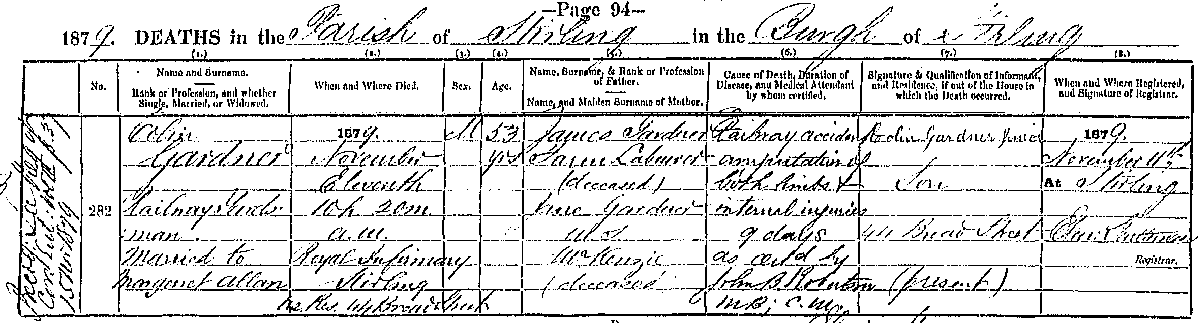 —Page 94—
1879. DEATHS in the Parish of Stirling in the Burgh of Stirling
(1.) (2.) (3.) (4.) (5.) (6.) (7.) (8.)
No.
Name and Surname.
Rank or Profession, and whether
Single, Married, or Widowed.
When and Where Died.
Sex.
Age.
Name, Surname, & Rank or Profession
of Father.
Name, and Maiden Surname of Mother.
Cause of Death, Duration of
Disease, and Medical Attendant
by whom certified.
Signature & Qualification of Informant,
and Residence, if out of the House in
which the Death occurred.
When and Where Registered,
and Signature of Registrar.
282
Colin
Gardner
Railway
man
Married to
Margaret Allan
1879.
November
Eleventh
10h 20m
a.m.
Royal Infirmary
Stirling
Res. 44 Broad Street
M
53
yrs
James Gardner
Farm Labourer
(deceased)
Jane Gardner
M.S.
McKenzie
(deceased)
Railway accident
amputation of
both limbs &
internal injuries
9 days
as certd by
John B.
M.B; C.M.
Colin Gardner
Son
44 Broad Street
(present)
1879.
November 11th
At Stirling
Registrar.